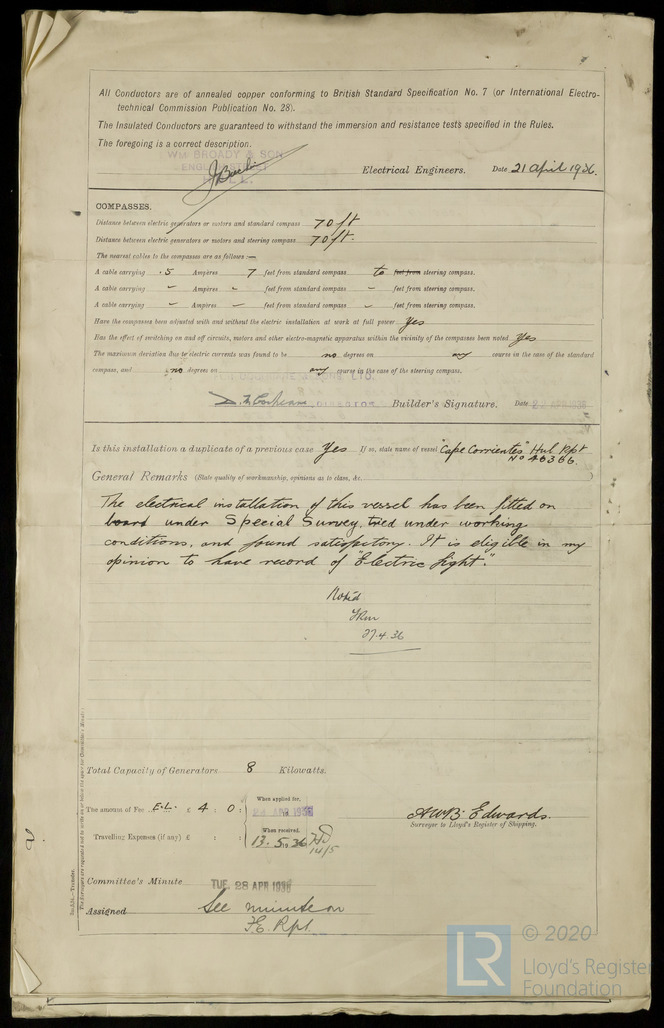 All Conductors are of annealed copper conforming to British Standard Specification No. 7 (or International Electro-
technical Commission Publication No. 28).
The Insulated Conductors are guaranteed to withstand the immersion and resistance tests specified in the Rules.
The foregoing is a correct description.
WM BROADY & SON
Electrical Engineers. Date 21 April 1936.
COMPASSES.
Distance between electric generators or motors and standard compass 70 ft
Distance between electric generators or motors and steering compass 70 ft.
The nearest cables to the compasses are as follows :—
A cable carrying .5 Ampères 7 feet from standard compass to feet from steering compass.
A cable carrying - Ampères - feet from standard compass - feet from steering compass.
A cable carrying - Ampères - feet from standard compass - feet from steering compass.
Have the compasses been adjusted with and without the electric installation at work at full power Yes
Has the effect of switching on and off circuits, motors and other electro-magnetic apparatus within the vicinity of the compasses been noted Yes
The maximum deviation due to electric currents was found to be no degrees on any course in the case of the standard
compass, and no degrees on any course in the case of the steering compass.
LTD.
DIRECTOR Builder's Signature. Date 22 APR 1936
Is this installation a duplicate of a previous case Yes If so, state name of vessel "Cape Corrientes" Hul Rpt
No 46366.
General Remarks (State quality of workmanship, opinions as to class, &c.)
The electrical installation of this vessel has been fitted on
board under Special Survey, tried under working
conditions, and found satisfactory. It is eligible in my
opinion to have record of "Electric Light".
Noted
27.4.36
Total Capacity of Generators 8 Kilowatts.
The amount of Fee E.L. £ 4 : 0 :
When applied for,
24 APR 1936
Travelling Expenses (if any) £ : :
When received,
13.5.1936
14/5
A.W.B. Edwards.
Surveyor to Lloyd's Register of Shipping.
Committee's Minute TUE. 28 APR 1936
Assigned See minute on
F.E. Rpt.
© 2020
LR
Lloyd's Register
Foundation